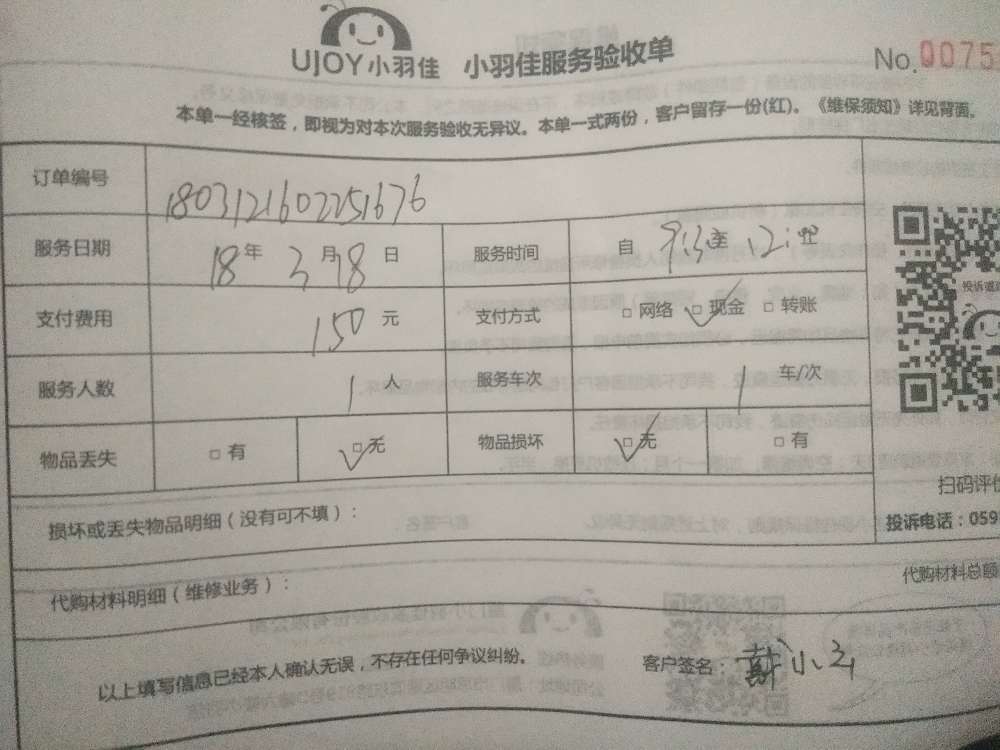 UJOY小羽佳 小羽佳服务验收单 No.0075
本单一经核签，即视为对本次服务验收无异议。本单一式两份，客户留存一份(红)。《维保须知》详见背面。
订单编号 1803121602251676
服务日期 18年3月18日 服务时间 自 9:30至12:00
支付费用 150元 支付方式 □网络 □现金 □转账
服务人数 1人 服务车次 1车/次
物品丢失 □有 □无 物品损坏 □无 □有
投诉
扫码评
损坏或丢失物品明细（没有可不填）： 投诉电话：059
代购材料明细（维修业务）： 代购材料总额
以上填写信息已经本人确认无误，不存在任何争议纠纷。 客户签名：戴小